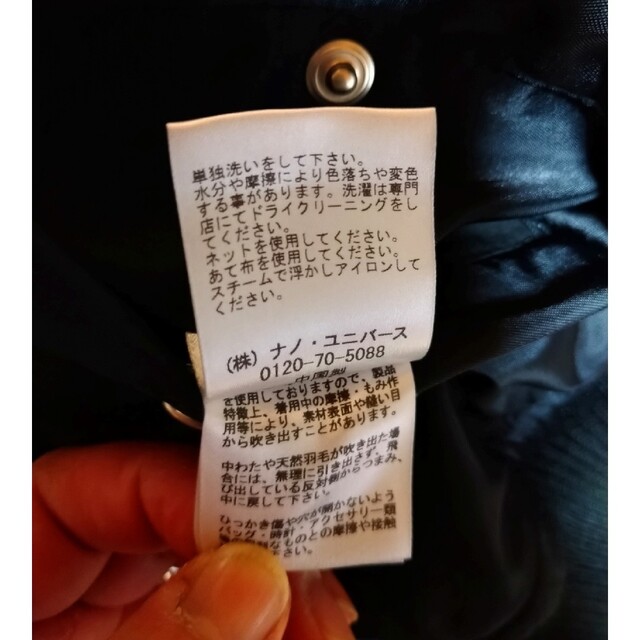 単独洗いをして下さい。
水分や摩擦により色落ちや変色
する事があります。洗濯は専門
店にてドライクリーニングをし
てください。
ネットを使用してください。
あて布を使用してください。
スチームで浮かしアイロンして
ください。
(株) ナノ・ユニバース
0120-70-5088
中国製
を使用しておりますので、製品
特徴上、着用中の摩擦・もみ作
用等により、素材表面や縫い目
から吹き出すことがあります。
中わたや天然羽毛が吹き出た場
合には、無理に引き出さず、飛
び出している反対側からつまみ、
中に戻して下さい。
ひっかき傷や穴が開かないよう
バッグ・時計・アクセサリー類
なものとの摩擦や接触
ださい。